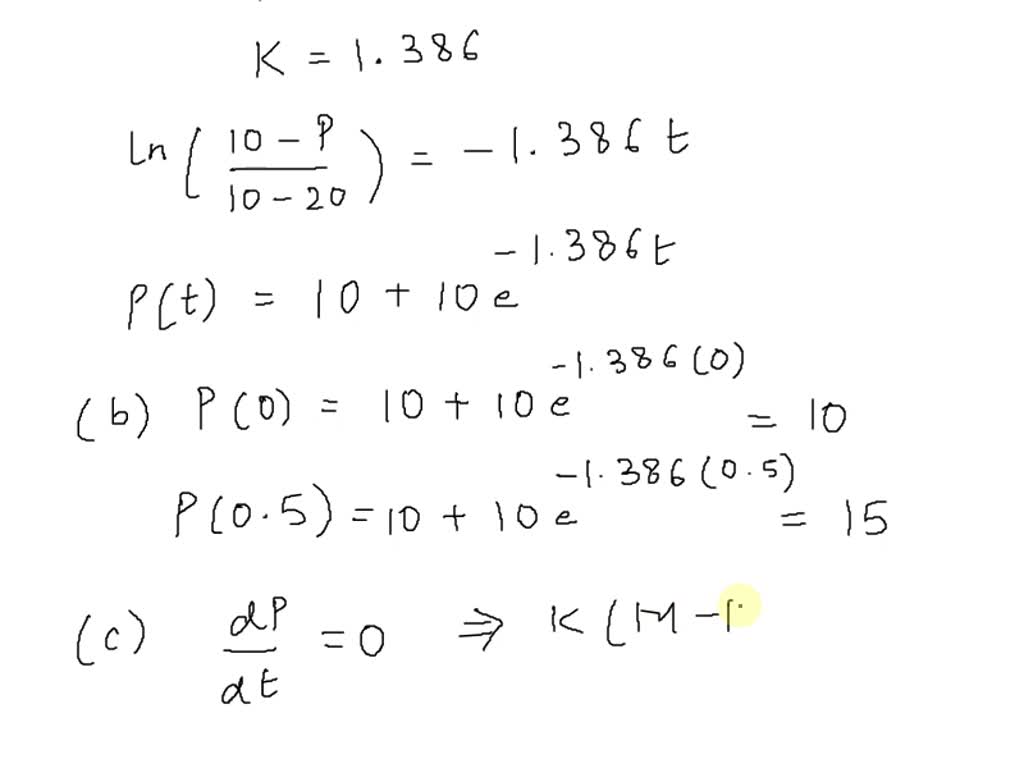 K = 1.386
Ln ( (10 - P) / (10 - 20) ) = - 1.386 t
P(t) = 10 + 10 e^(-1.386t)
(b) P(0) = 10 + 10 e^(-1.386(0)) = 10
P(0.5) = 10 + 10 e^(-1.386(0.5)) = 15
(c) dP/dt = 0 ⇒ K (M -